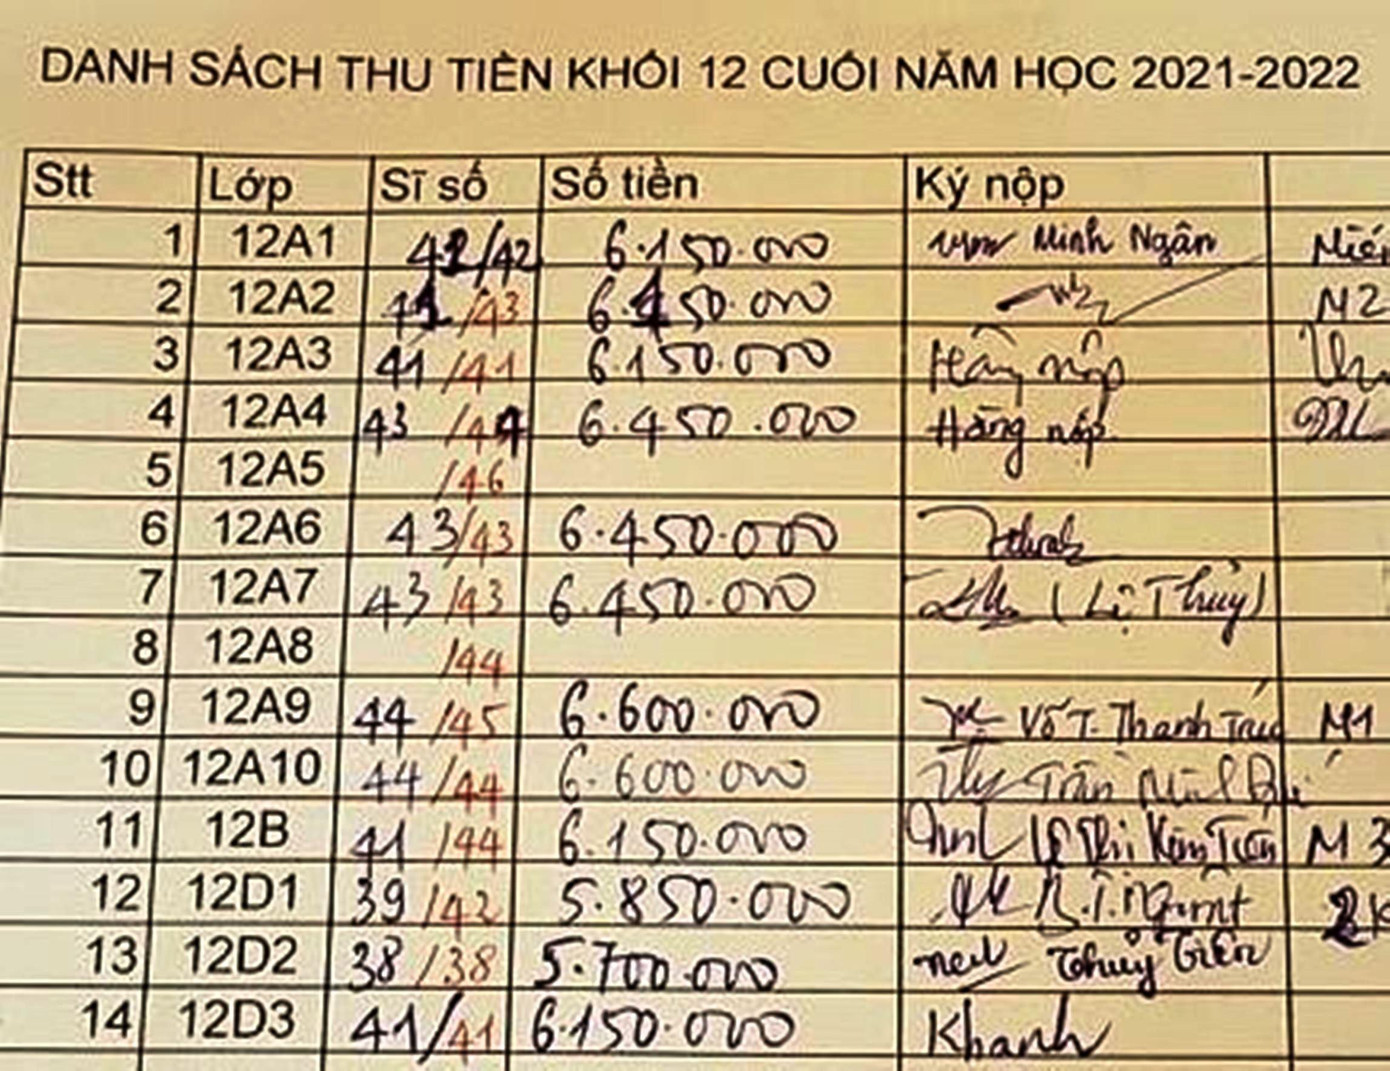 DANH SÁCH THU TIỀN KHỐI 12 CUỐI NĂM HỌC 2021-2022
Stt Lớp Sĩ số Số tiền Ký nộp
1 12A1 /42 6.150.000 Minh Ngân
2 12A2 41 /43 6.150.000 M2
3 12A3 41 /41 6.150.000 nộp
4 12A4 43 /44 6.450.000 Hằng nộp
5 12A5 /46
6 12A6 43/43 6.450.000
7 12A7 43 /43 6.450.000 (Lệ Thủy)
8 12A8 /44
9 12A9 44 /45 6.600.000 Võ T. Thanh Trúc M1
10 12A10 44 /44 6.600.000 Trần
11 12B 41 /44 6.150.000 Lê Thị Kim Tiến M 3
12 12D1 39 /42 5.850.000
13 12D2 38 /38 5.700.000 Thủy Tiên
14 12D3 41/41 6.150.000 Khanh